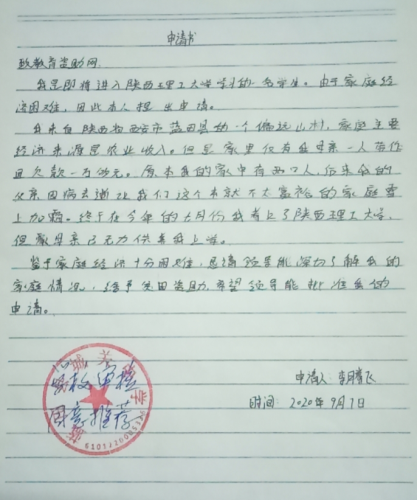 申请书
致教育资助网:
我是即将进入陕西理工大学学习的一名学生。由于家庭经
济困难,因此本人提出申请。
我来自陕西省西安市蓝田县的一个偏远山村,家庭主要
经济来源是农业收入。但是家里仅有母亲一人劳作
且欠款一万余元。原本我的家中有四口人,后来我的
父亲因病去逝让我们这个本就不太富裕的家庭雪
上加霜。终于在今年的七月份我考上了陕西理工大学,
但家母亲已无力供我上学。
鉴于家庭经济十分困难,恳请领导能深切了解我的
家庭情况,给予我困资助,希望领导能批准我的
申请。
经我校审核
同意推荐
申请人:
时间:2020年9月1日